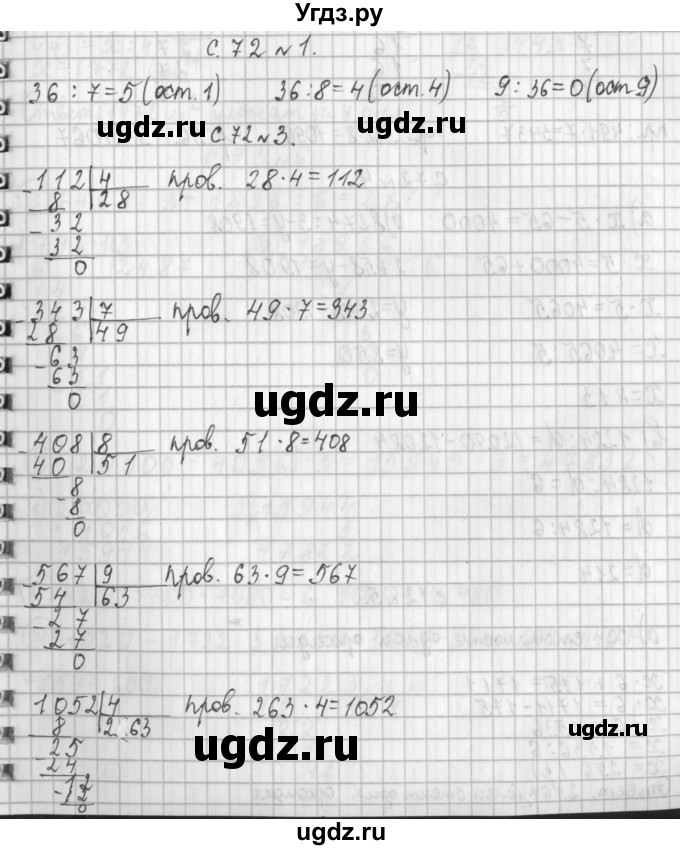 Угдз.ру
с. 72 № 1.
36 : 7 = 5 (ост. 1) 36 : 8 = 4 (ост. 4) 9 : 36 = 0 (ост 9)
ugdz.ru ugdz.ru
с. 72 № 3.
- 112 | 4 пров. 28 · 4 = 112
8 | 28
- 32
32
0
- 343 | 7 пров. 49 · 7 = 343
28 | 49
- 63
63
0
ugdz.ru
- 408 | 8 пров. 51 · 8 = 408
40 | 51
- 8
8
0
ugdz.ru
- 567 | 9 пров. 63 · 9 = 567
54 | 63
- 27
27
0
ugdz.ru
- 1052 | 4 пров. 263 · 4 = 1052
8 | 263
- 25
24
- 12
12
0
ugdz.ru
ugdz.ru
ugdz.ru